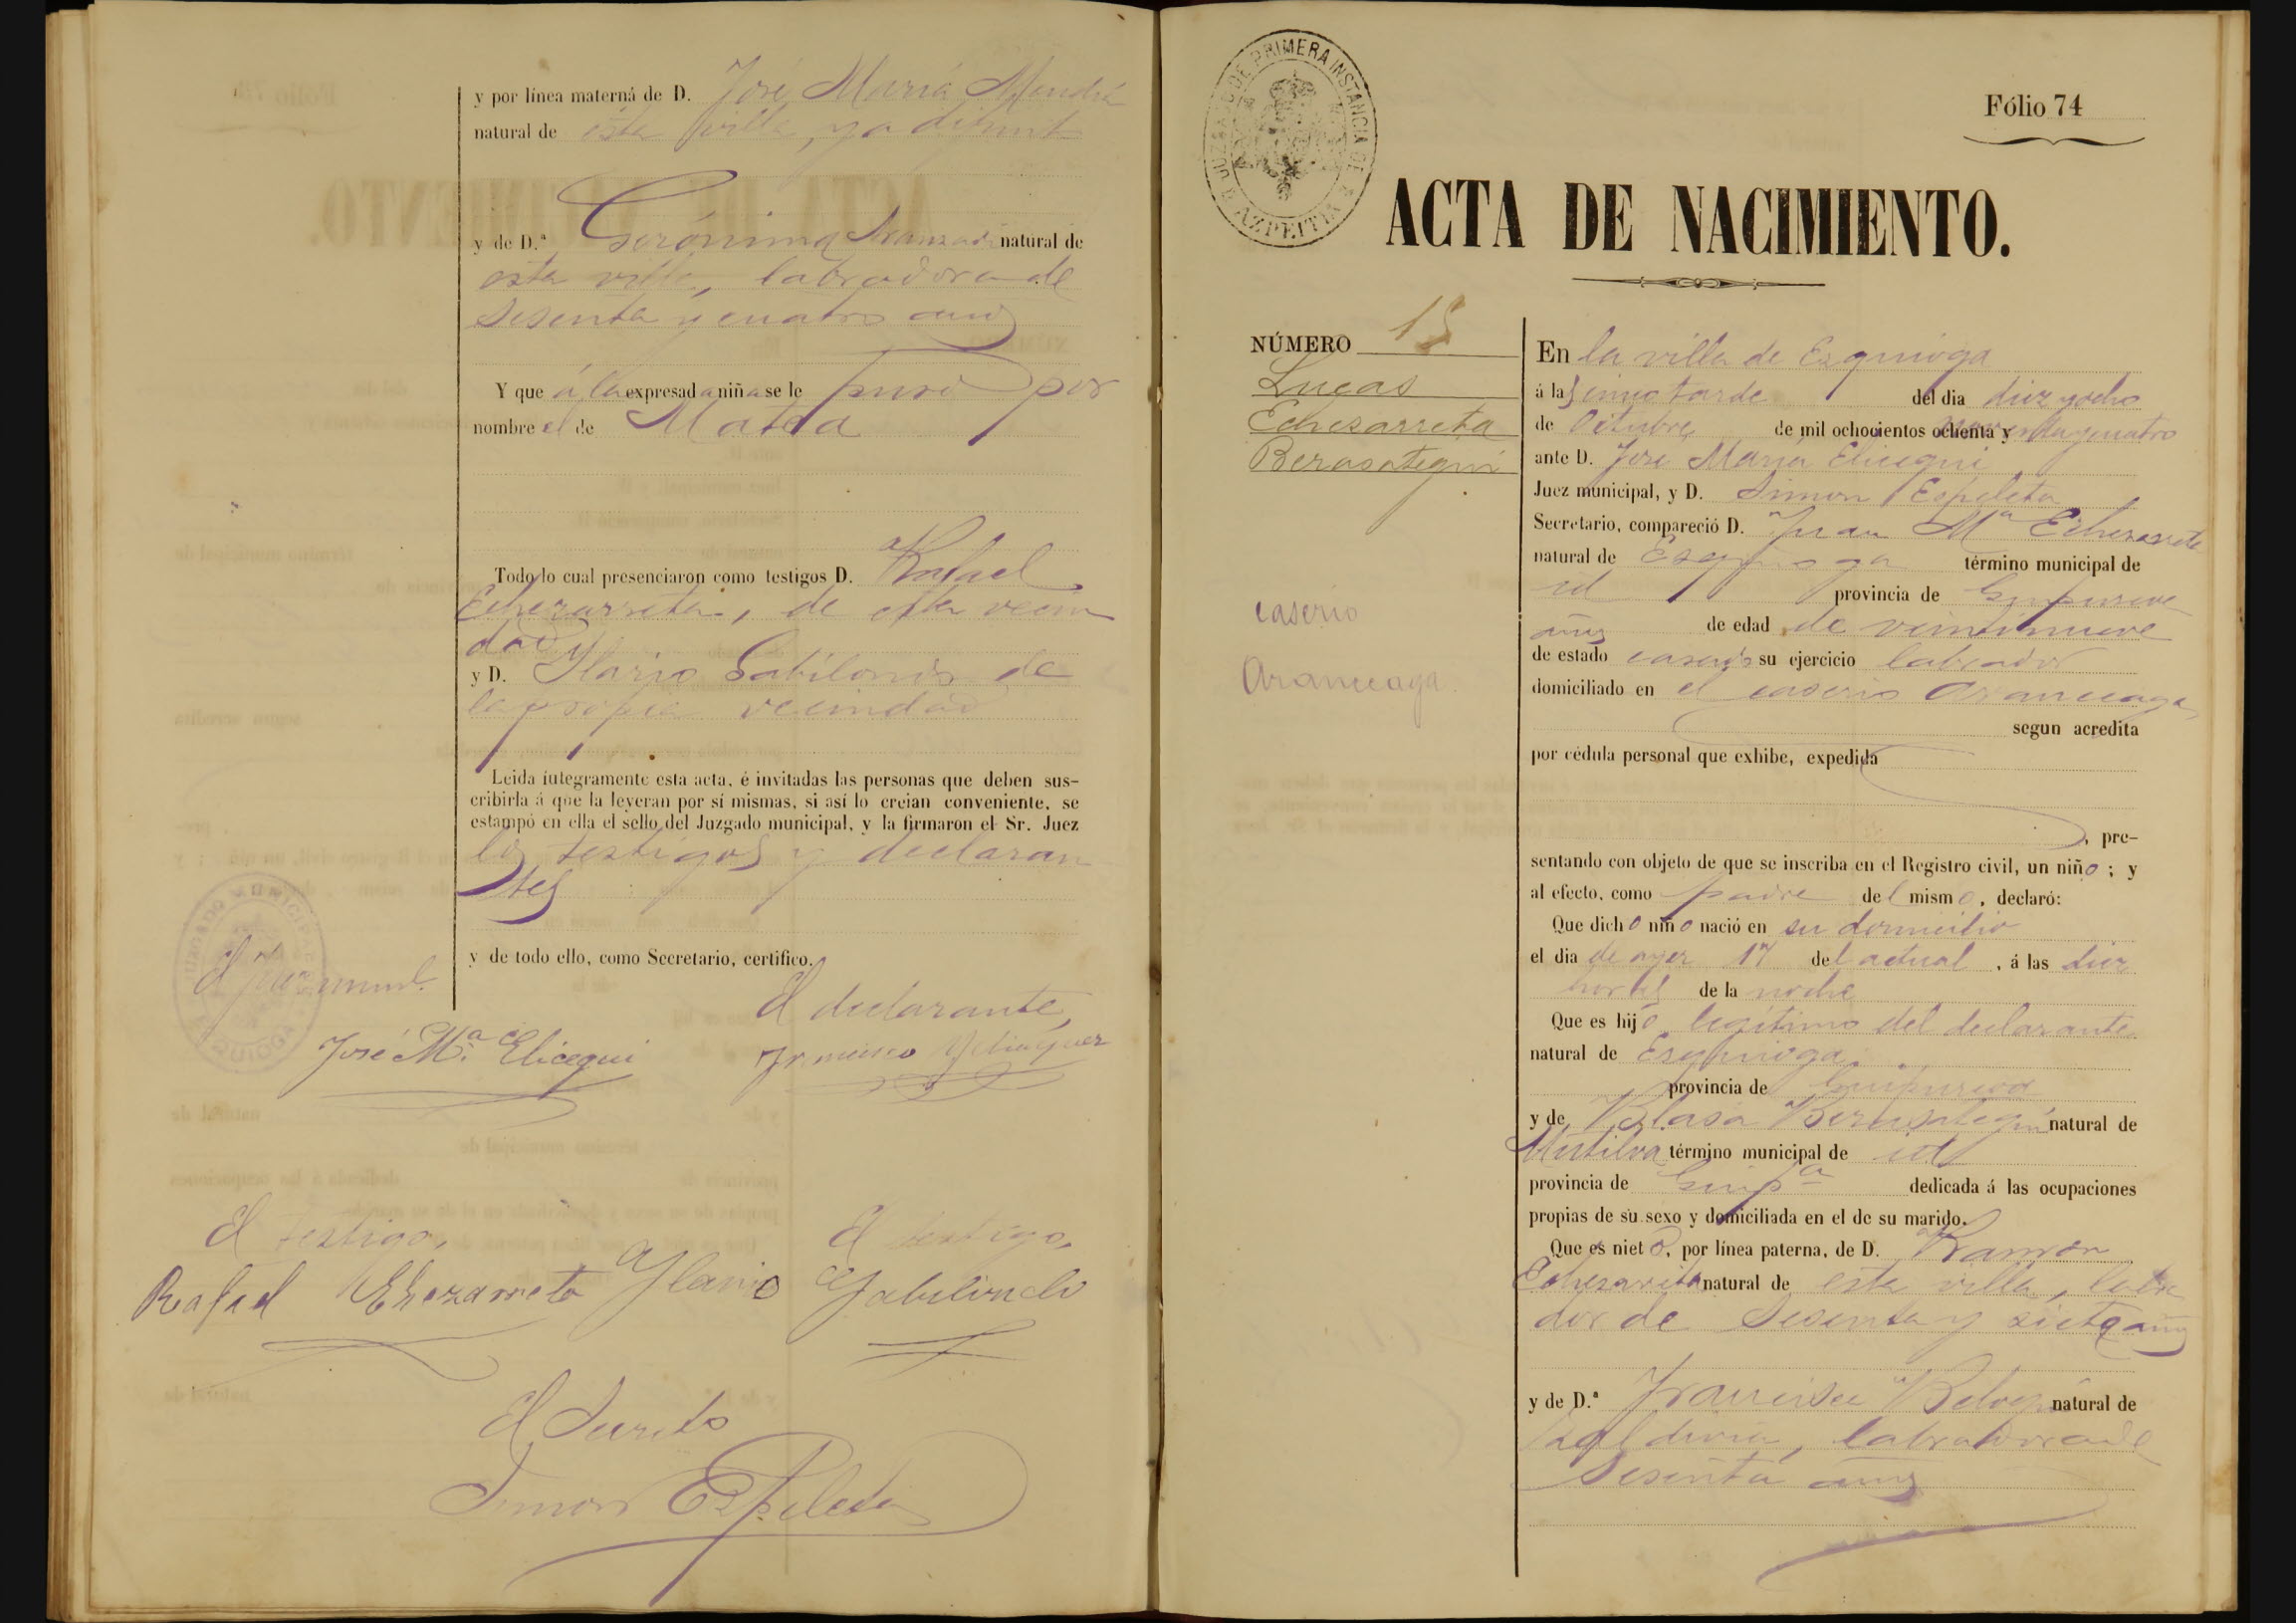 y por línea materna de D. José María Mendia
natural de esta villa, ya difunt
y de D.ª Gerónima natural de
esta villa, labradora de
sesenta y cuatro años
Y que á la expresada niña se le puso por
nombre el de Matea
Todo lo cual presenciaron como testigos D. Rafael
Echezarreta, de esta vecin
dad y
y D. Ilario Gabilondo de
la propia vecindad
Leida íntegramente esta acta, é invitadas las personas que deben sus-
cribirla á que la leyeran por sí mismas, si así lo creian conveniente, se
estampó en ella el sello del Juzgado municipal, y la firmaron el Sr. Juez
los testigos y declaran
tes
y de todo ello, como Secretario, certifico.
El Juez munl.
El declarante,
José M.ª Elicegui
El testigo,
El testigo,
Rafael Echezarreta
Ylario Gabilondo
El Secreto
Simon Espeleta
JUZGADO DE PRIMERA INSTANCIA DE AZPEITIA
Fólio 74
ACTA DE NACIMIENTO.
NÚMERO 15
Lucas
Echezarreta
Berasategui
caserio
Aranceaga.
En la villa de Ezquioga
á las cinco tarde del dia diez y ocho
de Octubre de mil ochocientos ochenta y noventa y cuatro
ante D. José María Elicegui
Juez municipal, y D. Simon Espeleta
Secretario, compareció D. Juan Mª Echezarreta
natural de Esquioga término municipal de
id provincia de Guipuzcoa
años de edad de veintinueve
de estado casado su ejercicio labrador
domiciliado en el caserio Aranceaga,
segun acredita
por cédula personal que exhibe, expedida
, pre-
sentando con objeto de que se inscriba en el Registro civil, un niño; y
al efecto, como padre del mismo, declaró:
Que dicho niño nació en su domicilio
el dia de ayer 17 del actual, á las diez
horas de la noche
Que es hijo legítimo del declarante
natural de Esquioga
provincia de Guipuzcoa
y de Blasa Berasategui natural de
Mutiloa término municipal de id
provincia de Guipª dedicada á las ocupaciones
propias de su sexo y domiciliada en el de su marido.
Que es nieto, por línea paterna, de D. Ramon
Echezarreta natural de esta villa, labra
dor de sesenta y siete años
y de D.ª Francisca natural de
Zaldivia, labradora de
sesenta años